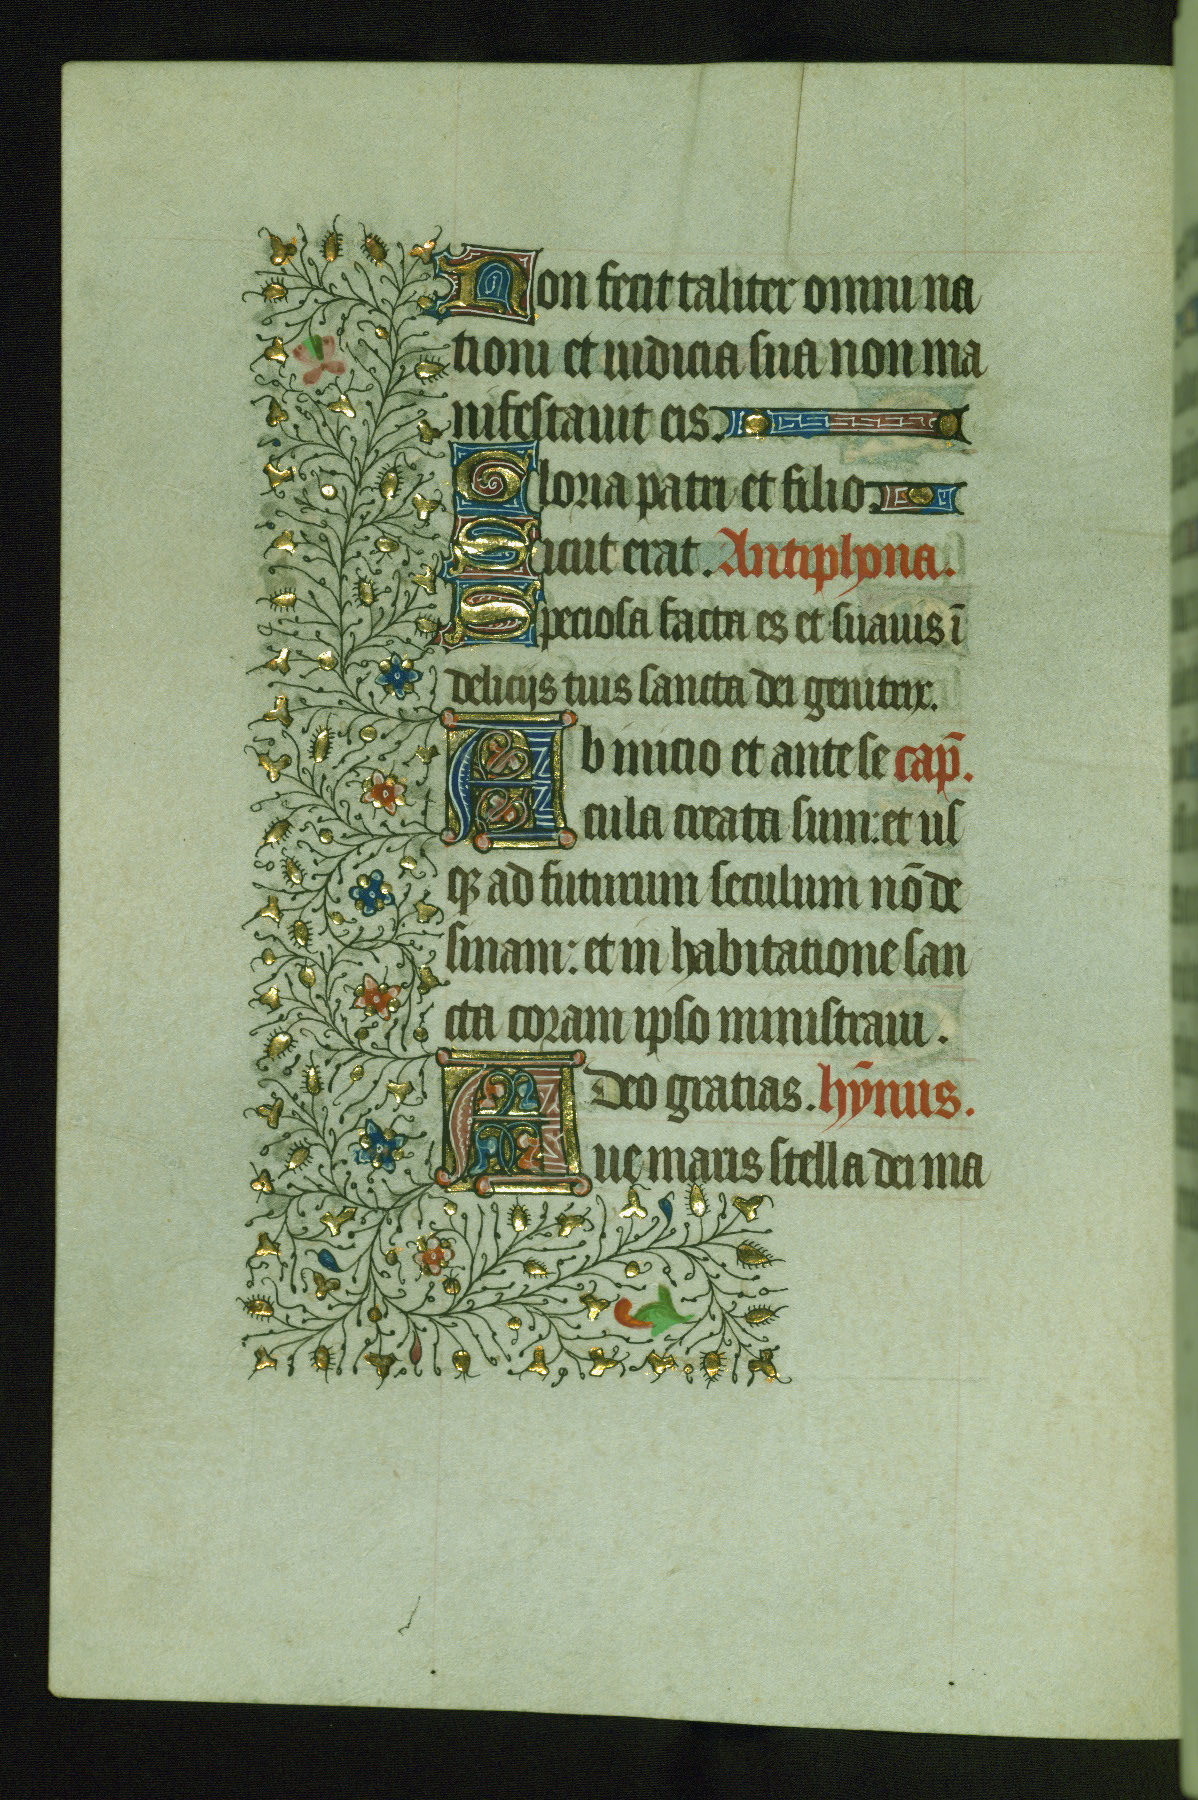 Non fecit taliter omni na
tioni et iudicia sua non ma
nifestauit eis.
Gloria patri et filio.
Sicut erat. Antiphona.
Speciosa facta es et suauis ī
delicijs tuis sancta dei genitrix.
Ab inicio et ante se cap̄.
cula creata sum: et us
qȝ ad futurum seculum nō de
sinam: et in habitatione san
cta coram ipso ministraui.
Deo gratias. hȳnus.
Aue maris stella dei ma